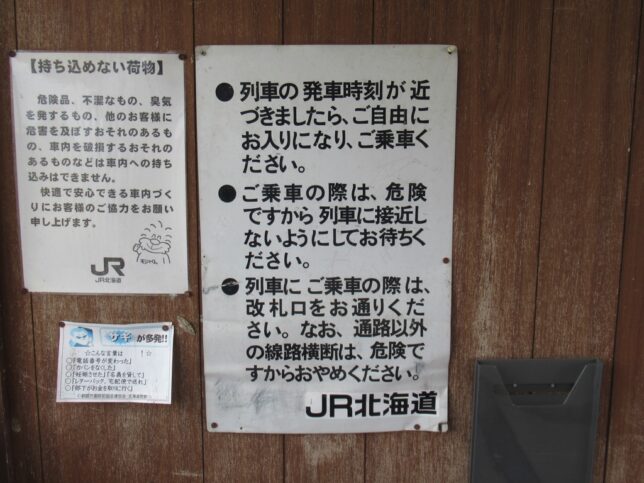 【持ち込めない荷物】
危険品、不潔なもの、臭気
を発するもの、他のお客様に
危害を及ぼすおそれのあるも
の、車内を破損するおそれの
あるものなどは車内への持ち
込みはできません。
快適で安心できる車内づく
りにお客様のご協力をお願い
申し上げます。
JR
JR北海道
サギが多発!!
☆こんな言葉は ！☆
○「電話番号が変わった」
○「カバンをなくした」
○「妊娠させた」「名義を貸して」
○「レターパック、宅配便で送れ」
○「部下がお金を取りに行く」
●列車の発車時刻が近
づきましたら、ご自由に
お入りになり、ご乗車く
ださい。
●ご乗車の際は、危険
ですから列車に接近し
ないようにしてお待ちく
ださい。
●列車にご乗車の際は、
改札口をお通りくだ
さい。なお、通路以外
の線路横断は、危険で
すからおやめください。
JR北海道